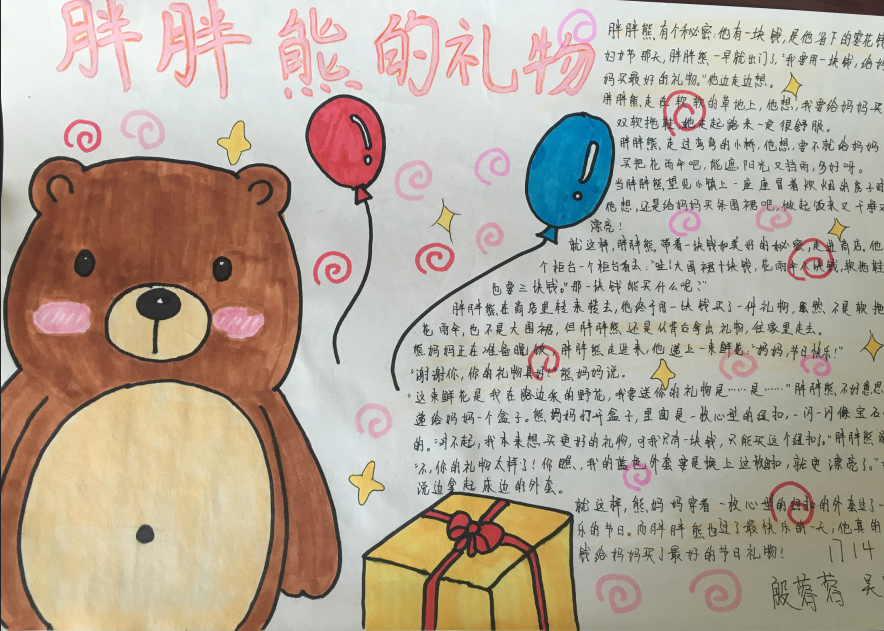 胖胖熊的礼物
胖胖熊有个秘密:他有一块钱,是他省下的零花钱
妇女节那天,胖胖熊一早就出门了,"我要用一块钱,给妈
妈买最好的礼物。"他边走边想。
胖胖熊走在软软的草地上,他想,我要给妈妈买
双软拖鞋,她走起路来一定很舒服。
胖胖熊走过弯弯的小桥,他想,要不就给妈妈
买把花雨伞吧,能遮阳光又挡雨,多好呀。
当胖胖熊望见小镇上一座座冒着炊烟的房子时
他想,还是给妈妈买条围裙吧,做起饭来又干净又
漂亮!
就这样,胖胖熊带着一块钱和美好的秘密,走进商店。他
个柜台一个柜台看去:"哇!大围裙十块钱,花雨伞八块钱,软拖鞋
也要三块钱。"那一块钱能买什么呢?"
胖胖熊在商店里转来转去,他终于用一块钱买了一件礼物,虽然不是软拖
花雨伞,也不是大围裙,但胖胖熊还是从背包拿出礼物,往家里走去。
熊妈妈正在准备晚饭,胖胖熊走进来,他递上一束鲜花:"妈妈,节日快乐!"
"谢谢你,你的礼物真好!"熊妈妈说。
"这束鲜花是我在路边采的野花,我要送你的礼物是……是……"胖胖熊不好意思
递给妈妈一个盒子。熊妈妈打开盒子,里面是一枚心型的纽扣,一闪一闪像宝石
的。"对不起,我本来想买更好的礼物,可我只有一块钱,只能买这个纽扣。"胖胖熊
"不,你的礼物太棒了!你瞧,我的蓝色外套要是换上这枚纽扣,就更漂亮了。"
说边拿起床边的外套。
就这样,熊妈妈穿着一枚心型的纽扣的外套过了一
乐的节日。而胖胖熊也过了最快乐的一天,他真的
钱给妈妈买了最好的节日礼物!
1714
殷蓉蓉 吴